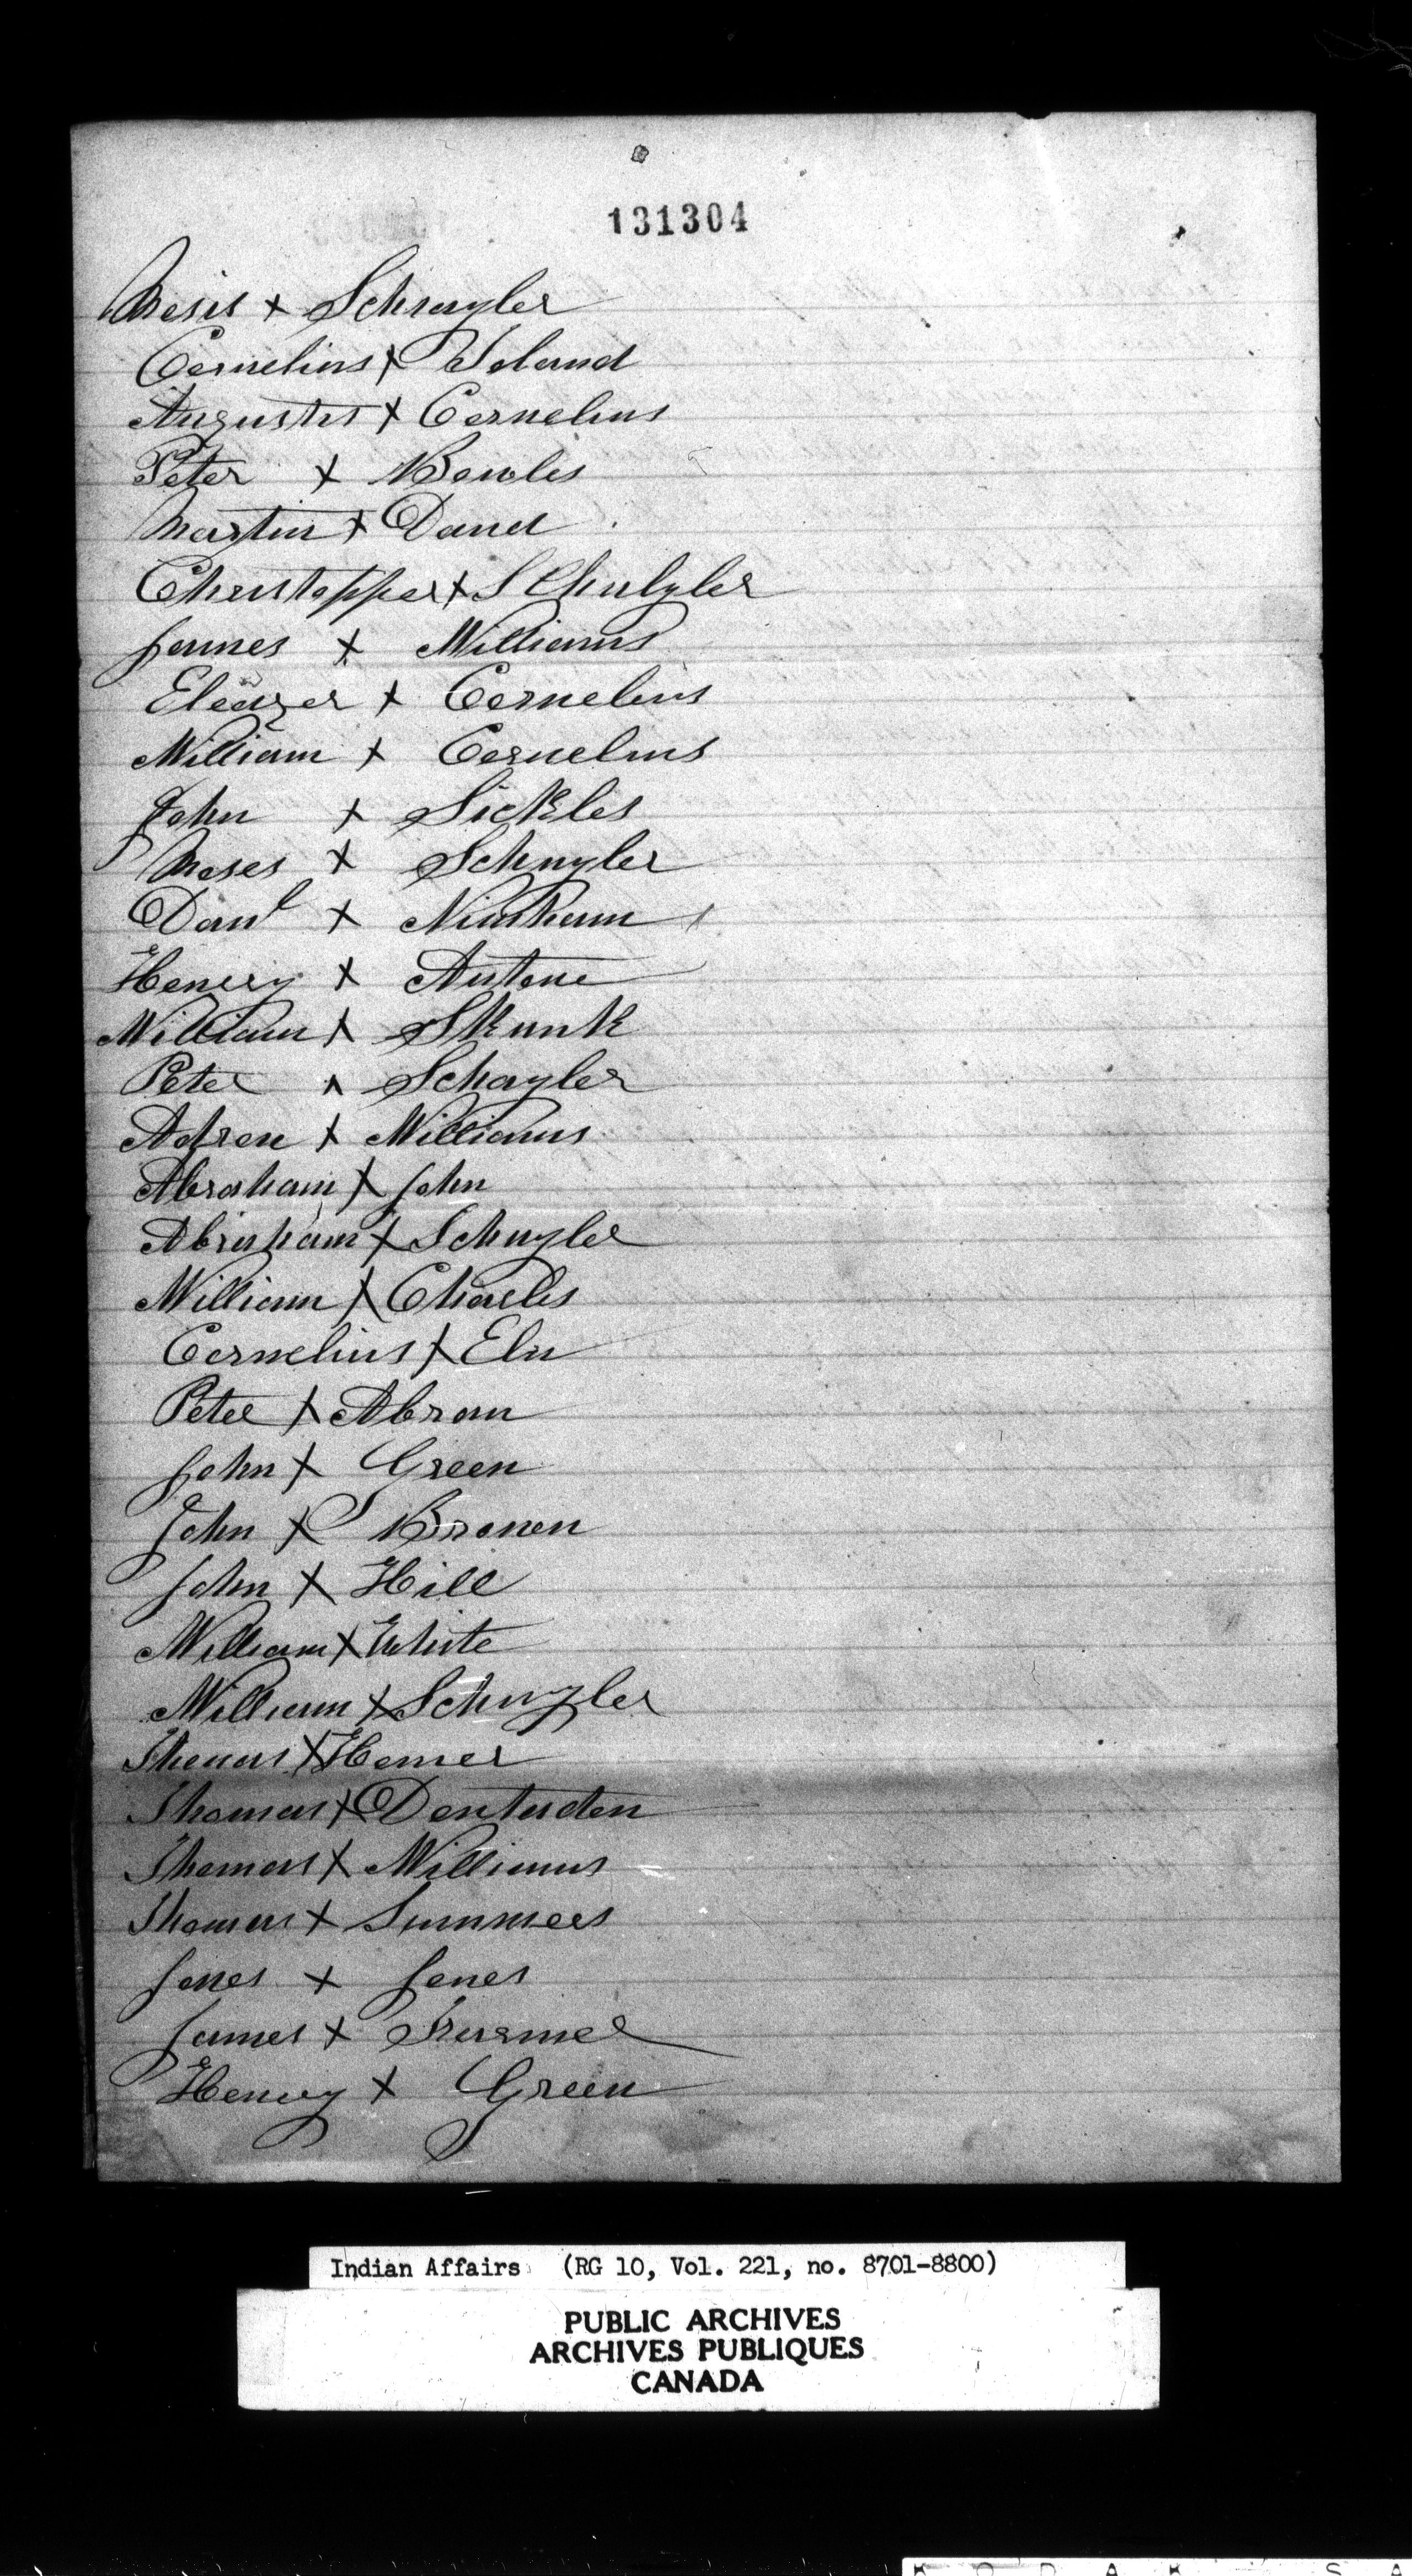 131304
Mosis x Schuyler
Cornelius x Island
Augustus x Cornelius
Peter x Bowles
Martin x Daned
Christopper x Schulyler
James x Williams
Eleazer x Cornelius
William x Cornelius
John x Sickles
Moses x Schuyler
Danl x Nimham
Henery x Antone
William x Skunk
Peter x Schayler
x Williams
Abraham x John
Abraham x Schuyler
William x Charles
Cornelius x Elu
Peter x Abram
John x Green
John x Brown
John x Hill
William x White
William x Schuyler
Thomas x Homer
Thomas x Doxtaden
Thomas x Williams
Thomas x Summers
Jones x Jones
James x
Henery x Green
Indian Affairs (RG 10, Vol. 221, no. 8701-8800)
PUBLIC ARCHIVES
ARCHIVES PUBLIQUES
CANADA